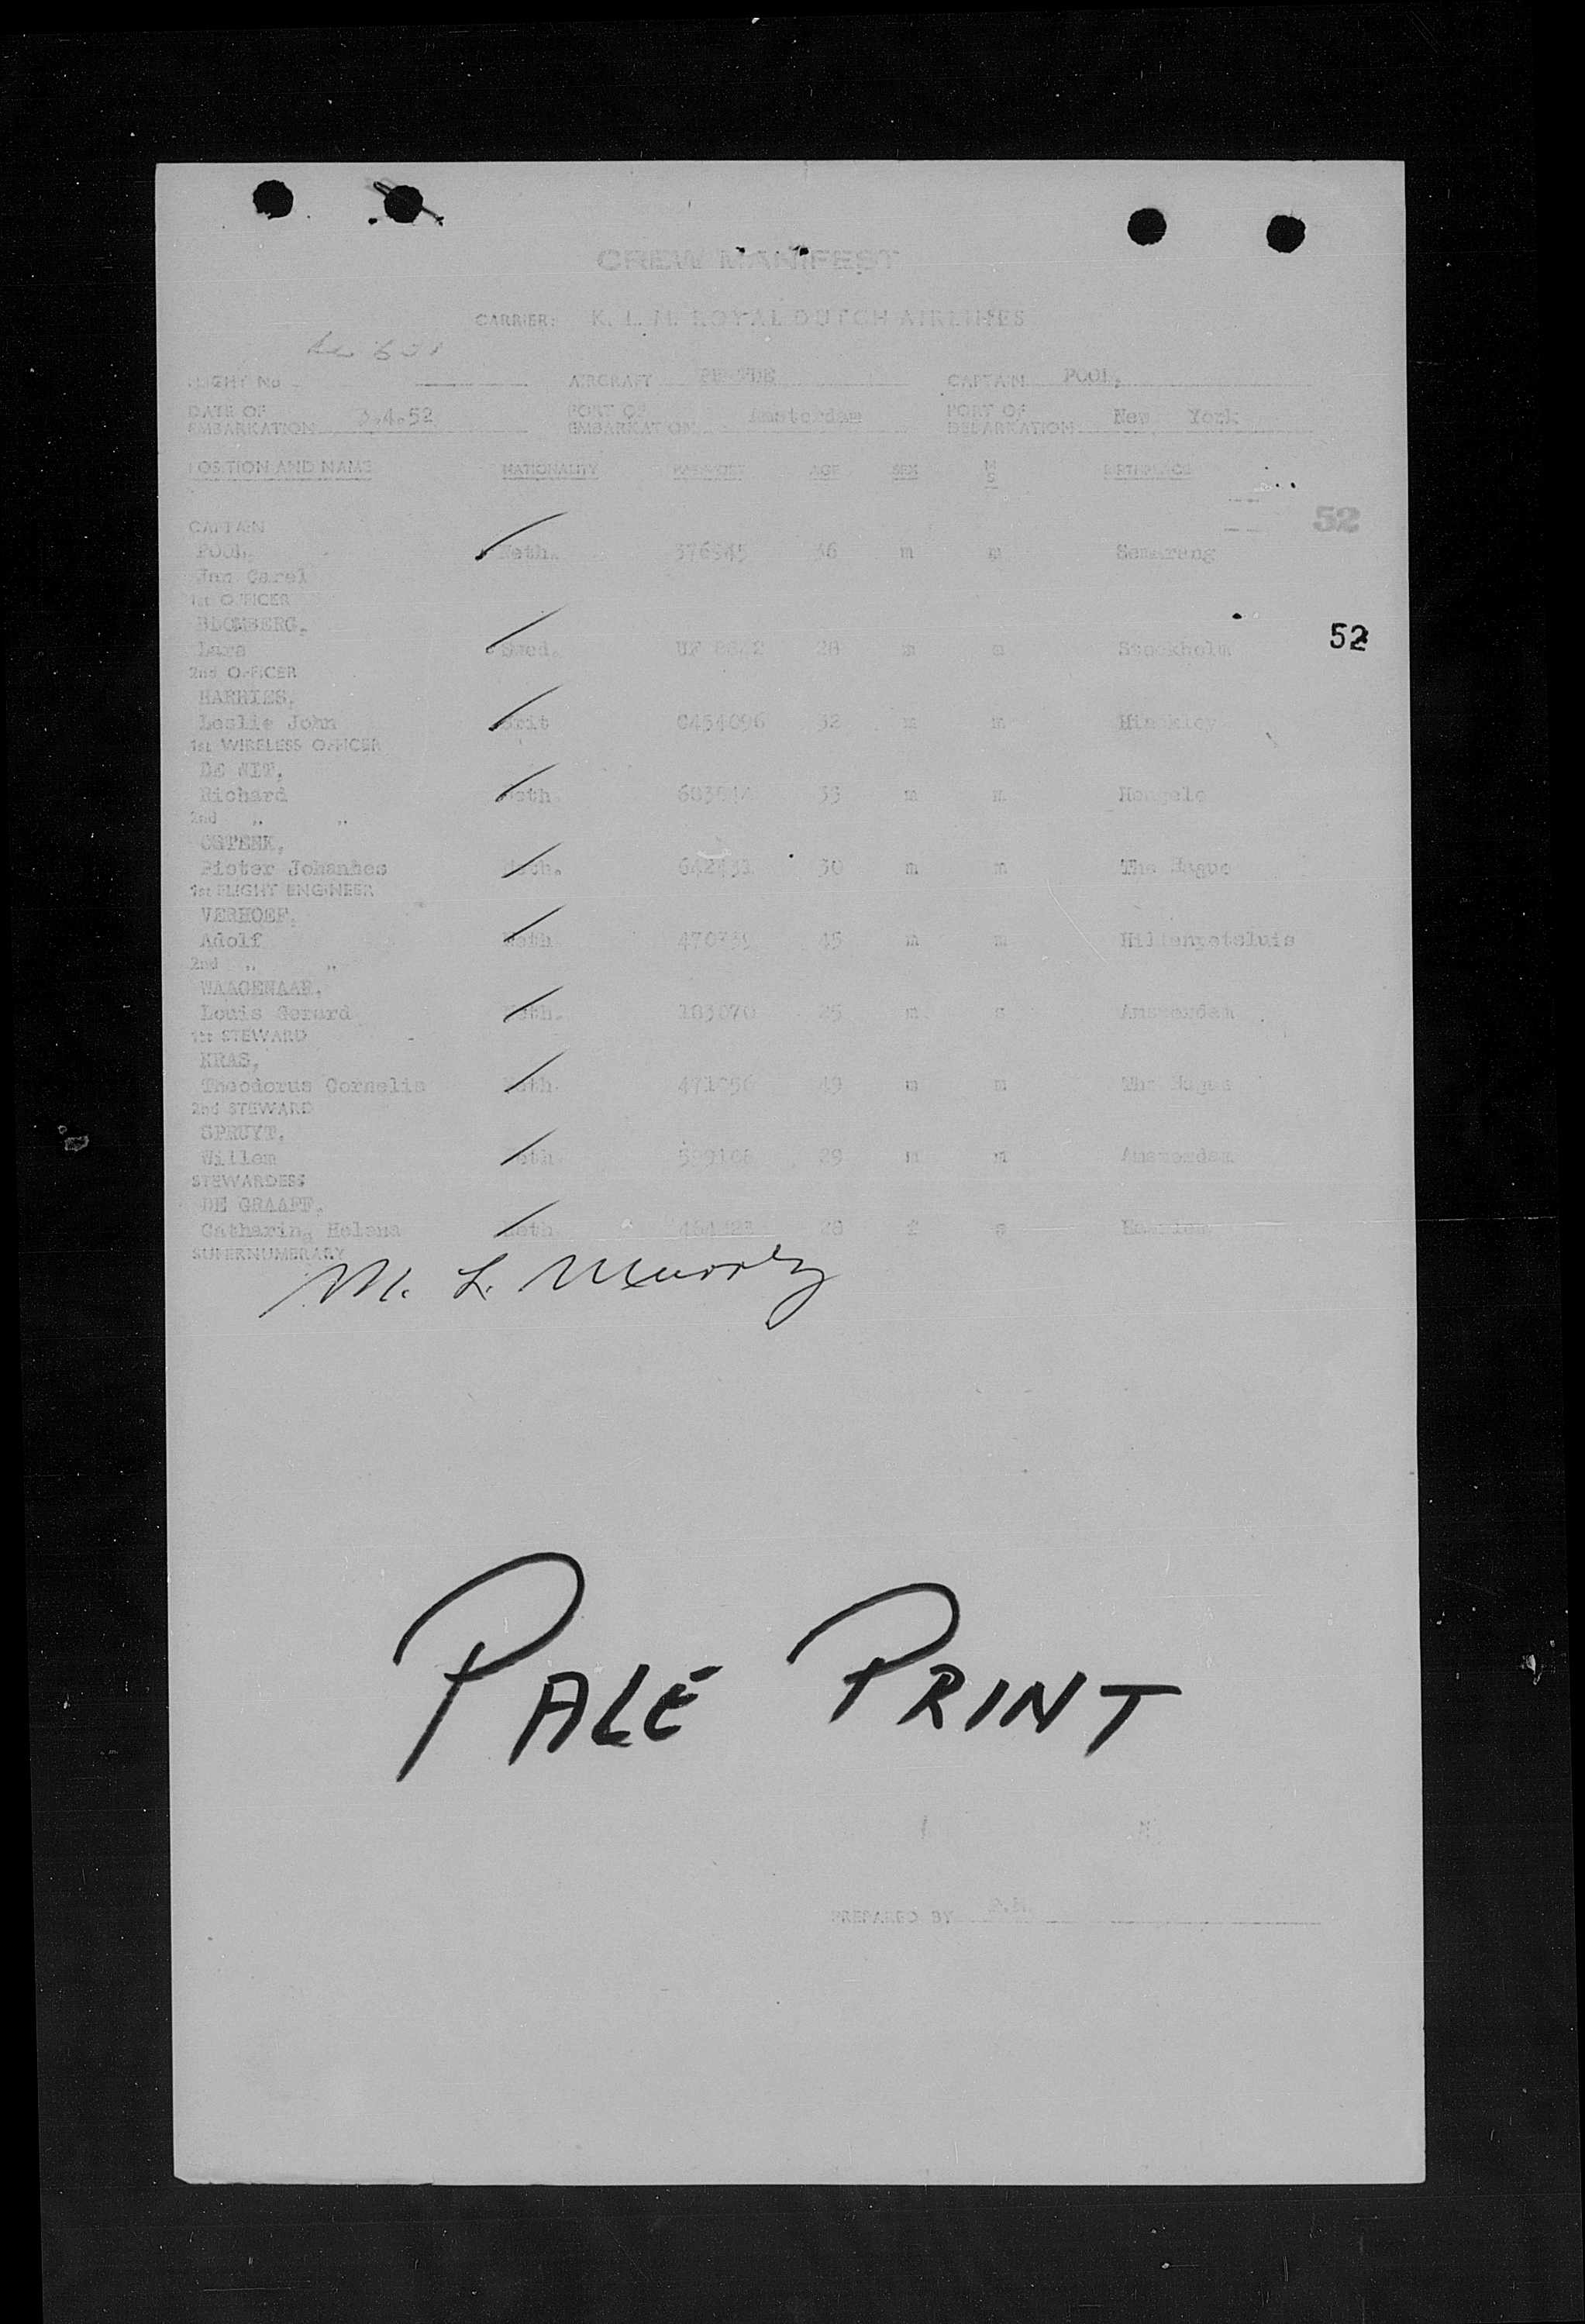 CREW MANIFEST
CARRIER: K. L. M. ROYAL DUTCH AIRLINES
FLIGHT No 601 AIRCRAFT CAPTAIN POOL,
DATE OF EMBARKATION 3.4.52 PORT OF EMBARKATION Amsterdam PORT OF DEBARKATION New York
POSITION AND NAME NATIONALITY PASSPORT AGE SEX M S BIRTHPLACE
52
CAPTAIN
POOL,
Neth. 376945 36 m m Semarang
Jan Carel
1st OFFICER
BLOMBERG,
52
Lars Swed. UF 28 m s Stockholm
2nd OFFICER
HARRIES,
Leslie John Brit C454096 32 m m Hinckley
1st WIRELESS OFFICER
DE WIT,
Richard Neth. 33 m m Hengelo
2nd " "
OSTENK,
Pieter Johannes Neth. 642431 30 m m The Hague
1st FLIGHT ENGINEER
VERHOEF,
Adolf Neth. 470339 45 m m
2nd " "
WAAGENAAR,
Louis Gerard Neth. 183070 25 m s Amsterdam
1st STEWARD
KRAS,
Theodorus Cornelis Neth. 471056 49 m m The Hague
2nd STEWARD
SPRUYT,
Willem Neth. 599108 29 m m Amsterdam
STEWARDESS
DE GRAAFF,
Catharina Helena Neth. 28 f s
SUPERNUMERARY
M. L.
PALE PRINT
PREPARED BY